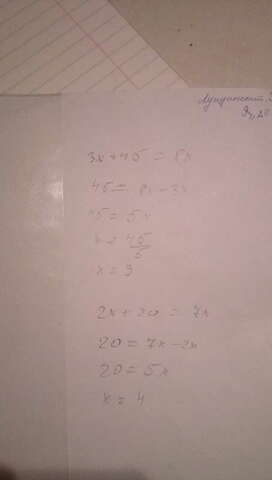 3x + 45 = 8x
45 = 8x - 3x
45 = 5x
x = 45/5
x = 9
2x + 20 = 7x
20 = 7x - 2x
20 = 5x
x = 4